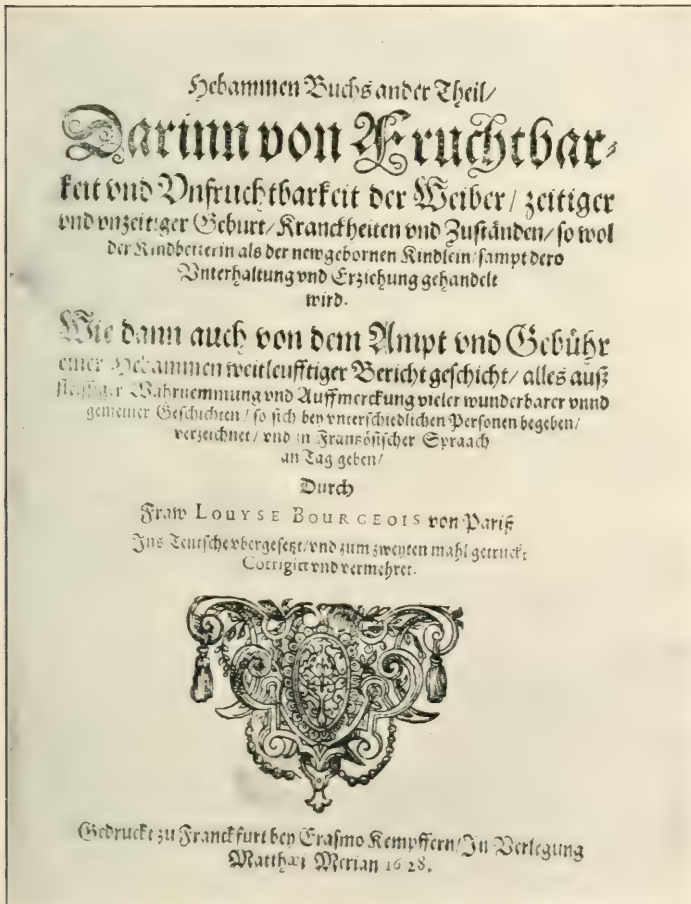 Hebammen Buchs ander Theil/
Darinn von Fruchtbar⸗
keit vnd Vnfruchtbarkeit der Weiber/ zeitiger
vnd vnzeitiger Geburt/ Kranckheiten vnd Zuständen/ so wol
der Kindbetterin als der newgebornen Kindlein/ sampt dero
Vnterhaltung vnd Erziehung gehandelt
wird.
Wie dann auch von dem Ampt vnd Gebühr
einer Hebammen weitleufftiger Bericht geschicht/ alles auß
fleissiger Wahrnemmung vnd Auffmerckung vieler wunderbarer vnnd
gemeiner Geschichten/ so sich bey vnterschiedlichen Personen begeben/
verzeichnet/ vnd in Frantzösischer Spraach
an Tag geben/
Durch
Fraw LOUYSE BOURGEOIS von Pariß
Ins Teutsche vbergesetzt/ vnd zum zweyten mahl getruckt
Corrigirt vnd vermehret.
Gedruckt zu Franckfurt bey Erasmo Kempffern/ In Verlegung
Matthæi Merian 1628.